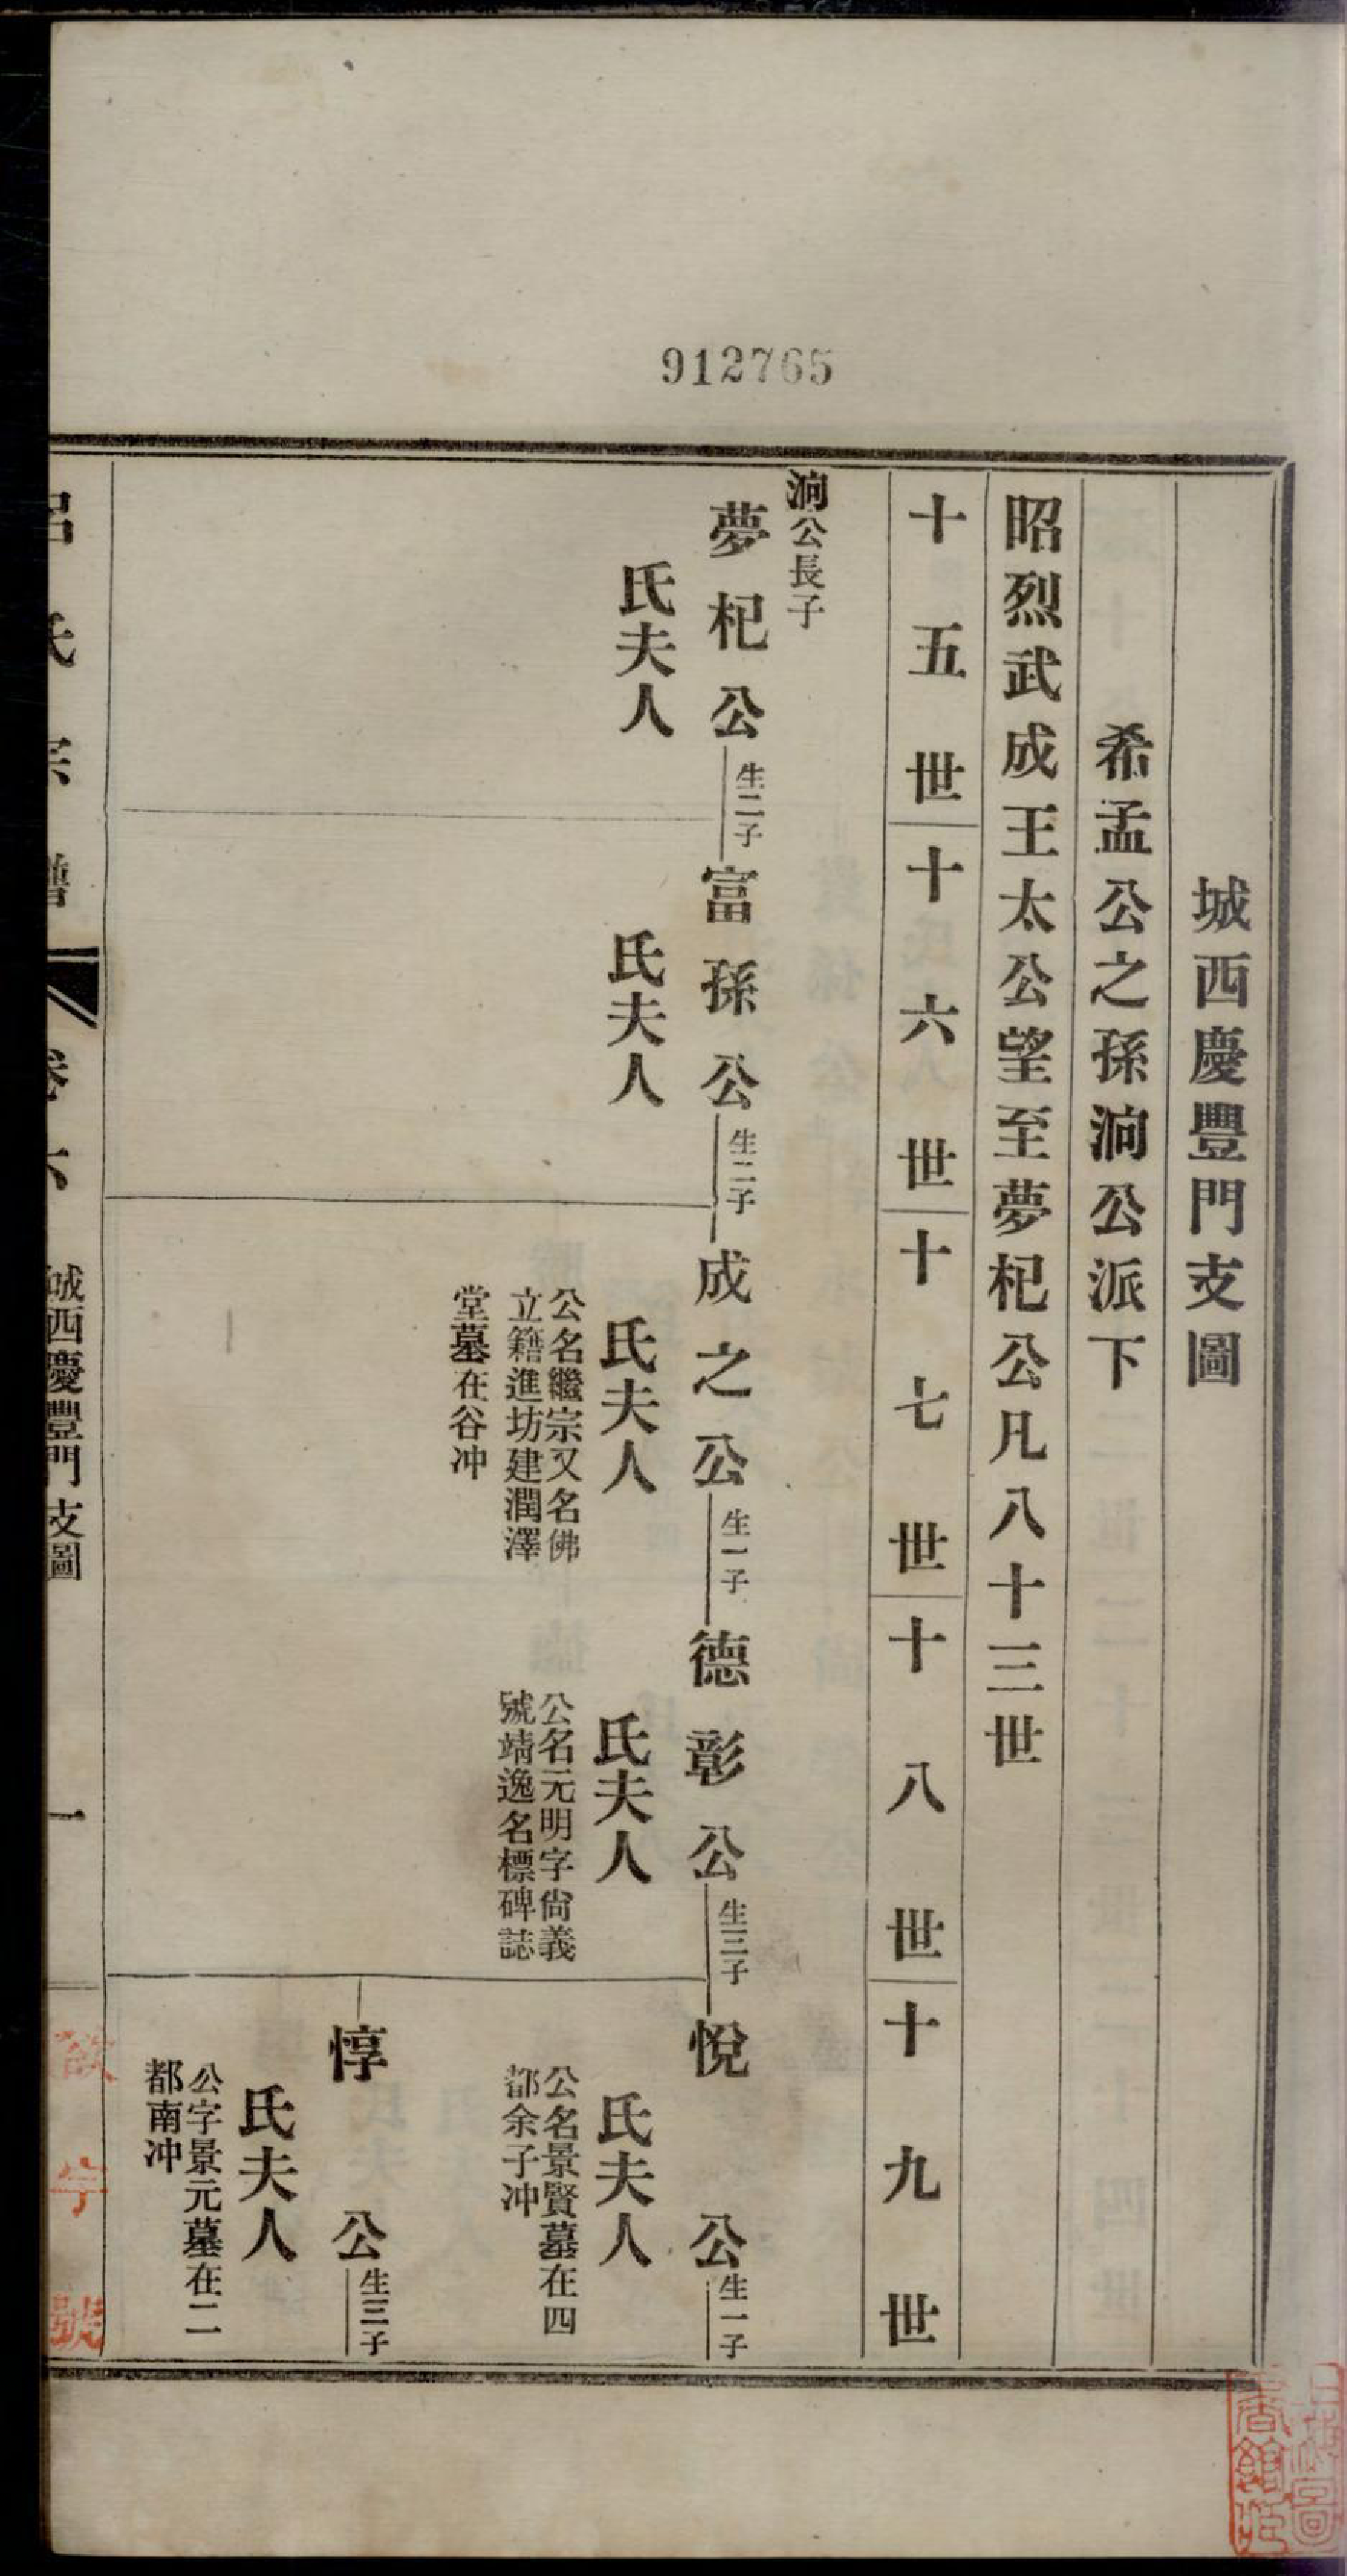 912765
城西慶豐門支圖
希孟公之孫泂公派下
昭烈武成王太公望至夢杞公凡八十三世
十五世
十六世
十七世
十八世
十九世
泂公長子
夢杞公
生二子
富孫公
生二子
成之公
生一子
德彰公
生三子
悅公
生一子
氏夫人
氏夫人
氏夫人
公名繼宗又名佛
立籍進坊建潤澤
堂墓在谷冲
氏夫人
公名元明字尙義
號靖逸名標碑誌
氏夫人
公名景賢墓在四
都余子冲
惇公
生三子
氏夫人
公字景元墓在二
都南冲
呂氏宗譜
卷六
城西慶豐門支圖
一
字號